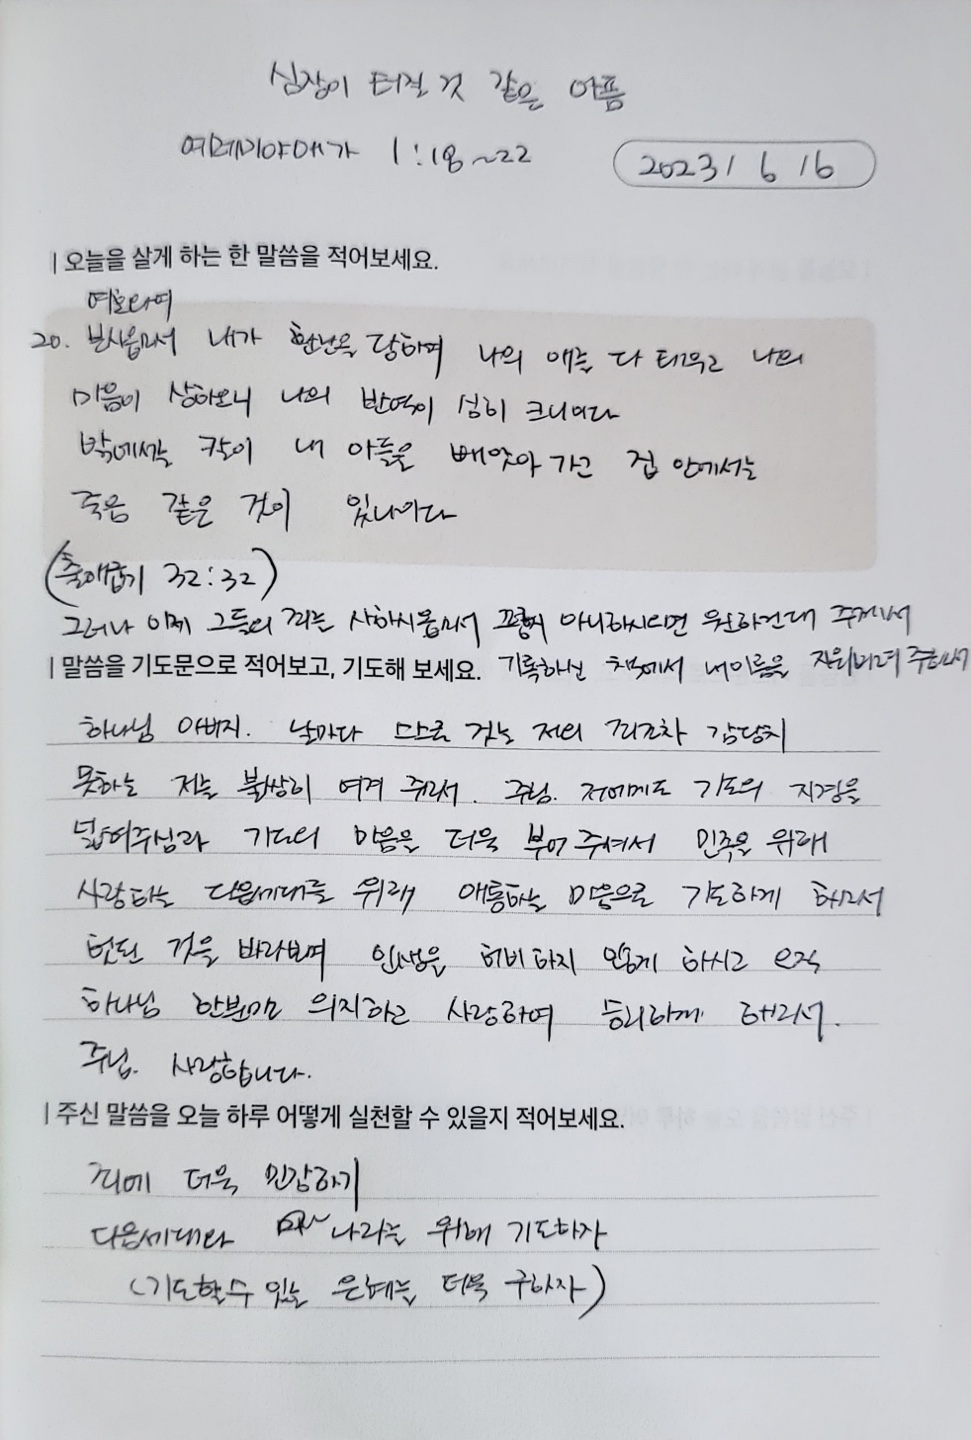 심장이 터질 것 같은 아픔
예레미야애가 1:18~22
2023 / 6 / 16
| 오늘을 살게 하는 한 말씀을 적어보세요.
여호와여
20. 보시옵소서 내가 환난을 당하여 나의 애를 다 태우고 나의
마음이 상하오니 나의 반역이 심히 크니이다
밖에서는 칼이 내 아들을 빼앗아 가고 집 안에서는
죽음 같은 것이 있나이다
(출애굽기 32:32)
그러나 이제 그들의 죄를 사하시옵소서 그렇지 아니하시오면 원하건대 주께서
기록하신 책에서 내 이름을 지워버려 주옵소서
| 말씀을 기도문으로 적어보고, 기도해 보세요.
하나님 아버지. 날마다 스스로 짓는 저의 죄조차 감당치
못하는 저를 불쌍히 여겨 주소서. 주님. 저에게도 기도의 지경을
넓혀주심과 기도의 마음을 더욱 부어 주셔서 민족을 위해
사랑하는 다음세대를 위해 애통하는 마음으로 기도하게 하소서
헛된 것을 바라보며 인생을 허비하지 않게 하시고 오직
하나님 한분만 의지하고 사랑하여 승리하게 하소서.
주님. 사랑합니다.
| 주신 말씀을 오늘 하루 어떻게 실천할 수 있을지 적어보세요.
죄에 더욱 민감하기
다음세대와 나라를 위해 기도하자
(기도할수 있는 은혜를 더욱 구하자)